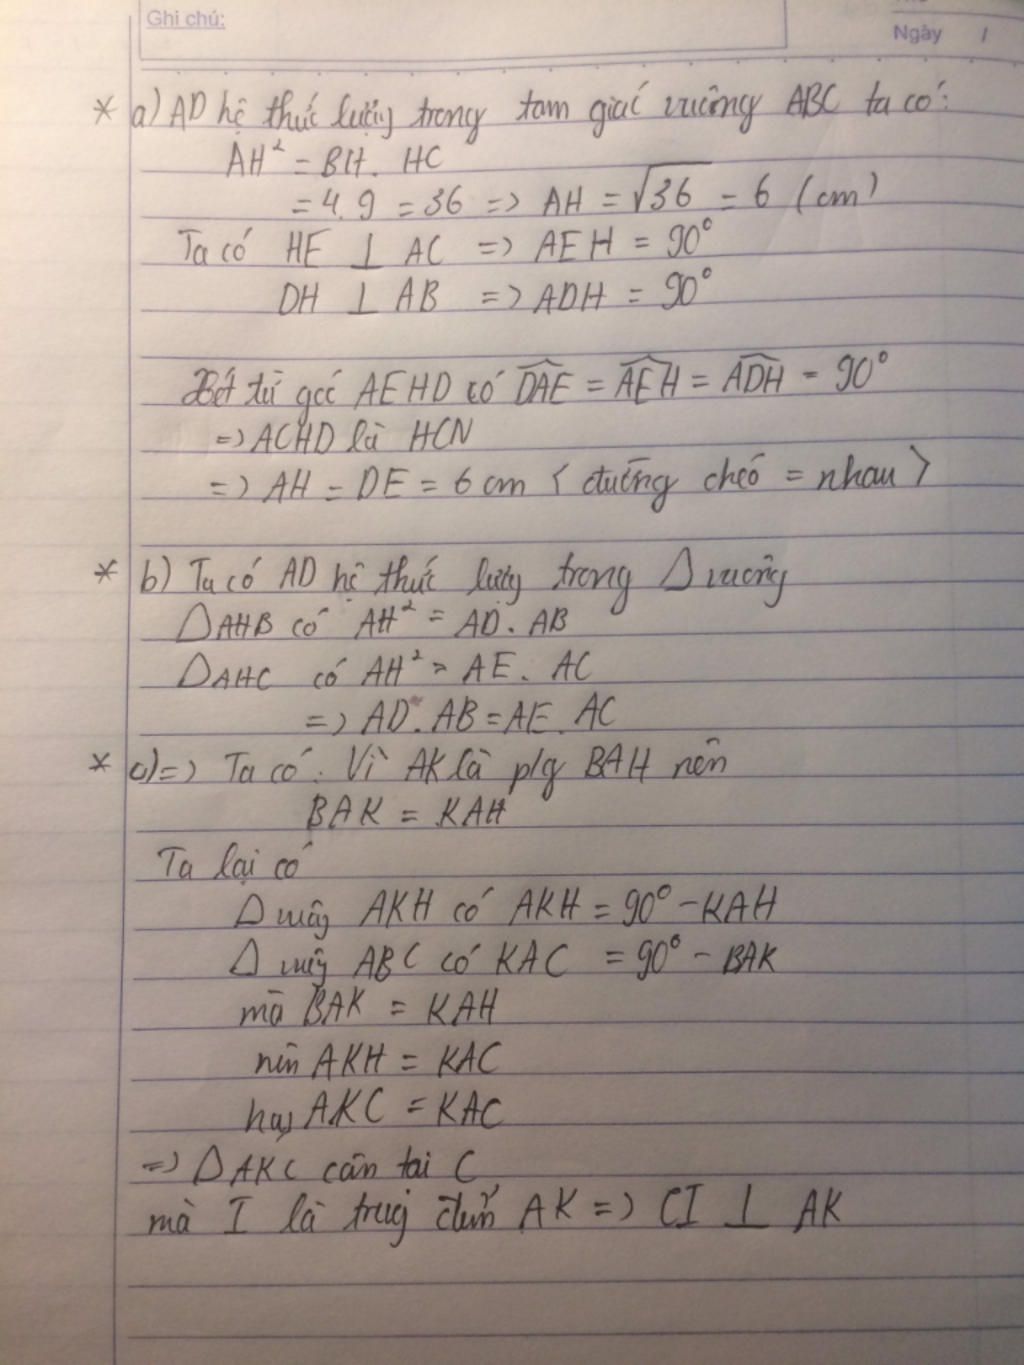 Ghi chú:
Ngày /
* a) AD hệ thức lượng trong tam giác vuông ABC ta có:
AH² = BH. HC
= 4. 9 = 36 => AH = √36 = 6 (cm)
Ta có HE ⊥ AC => AEH = 90°
DH ⊥ AB => ADH = 90°
Xét tứ góc AEHD có \widehat{DAE} = \widehat{AEH} = \widehat{ADH} = 90°
=> ACHD là HCN
=> AH = DE = 6 cm < đường chéo = nhau >
* b) Ta có AD hệ thức lượng trong Δ vuông
ΔAHB có AH² = AD. AB
ΔAHC có AH² = AE. AC
=> AD. AB = AE. AC
* c) => Ta có: Vì AK là p/g BAH nên
BAK = KAH
Ta lại có
Δ vuông AKH có AKH = 90° - KAH
Δ vuông ABC có KAC = 90° - BAK
mà BAK = KAH
nên AKH = KAC
hay AKC = KAC
=> ΔAKC cân tai C
mà I là trung điểm AK => CI ⊥ AK